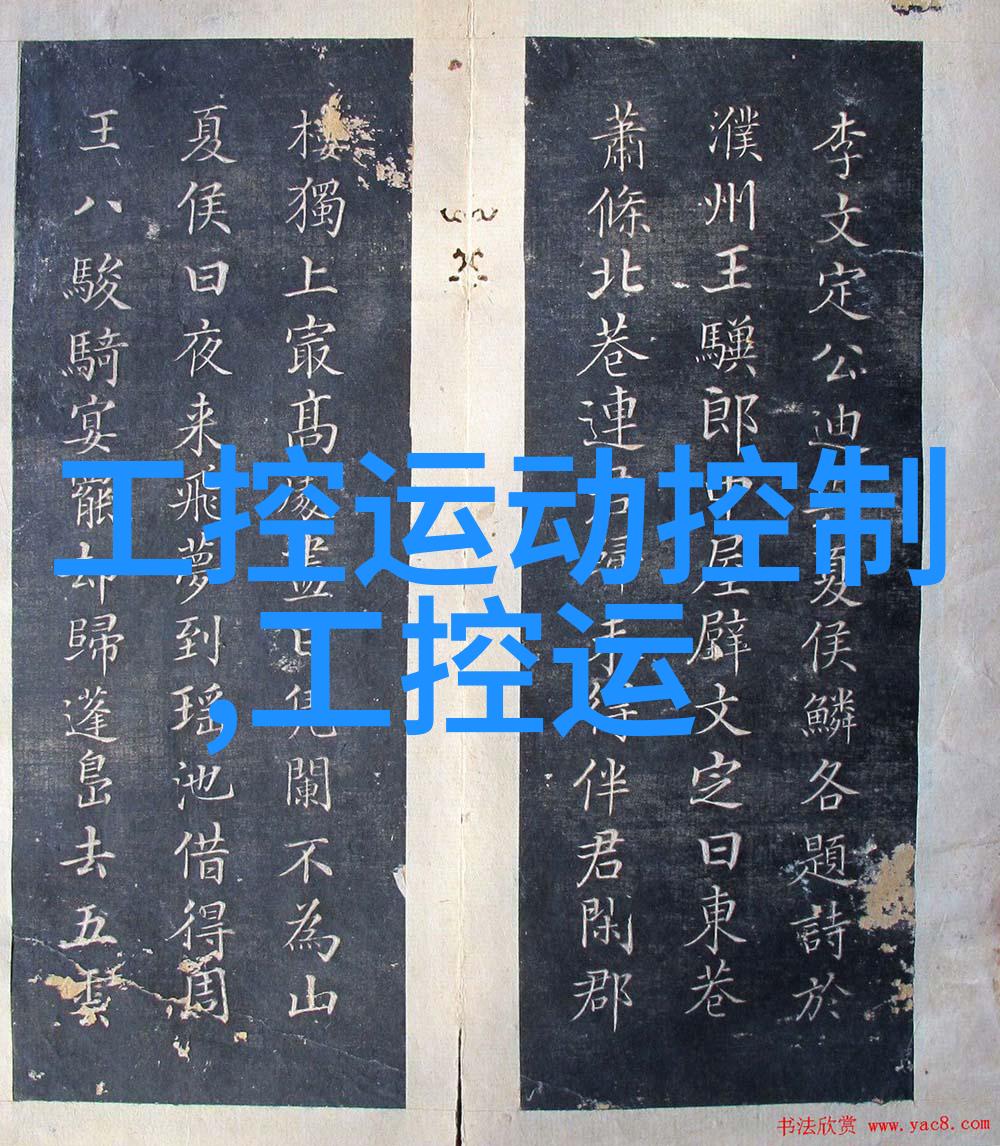 李文定公迪夏侯鱗各題詩於
濮州王郎屋壁文定曰東巷
蕭條北巷連伴君閑郡
樓獨上㝡髙處盡日闌不為山
夏侯曰夜来飛夢到瑶池借得周
王八駿騎宴罷却歸蓬島去五雲
工控运动控制
,工控运
书法欣赏 www.yac8.com